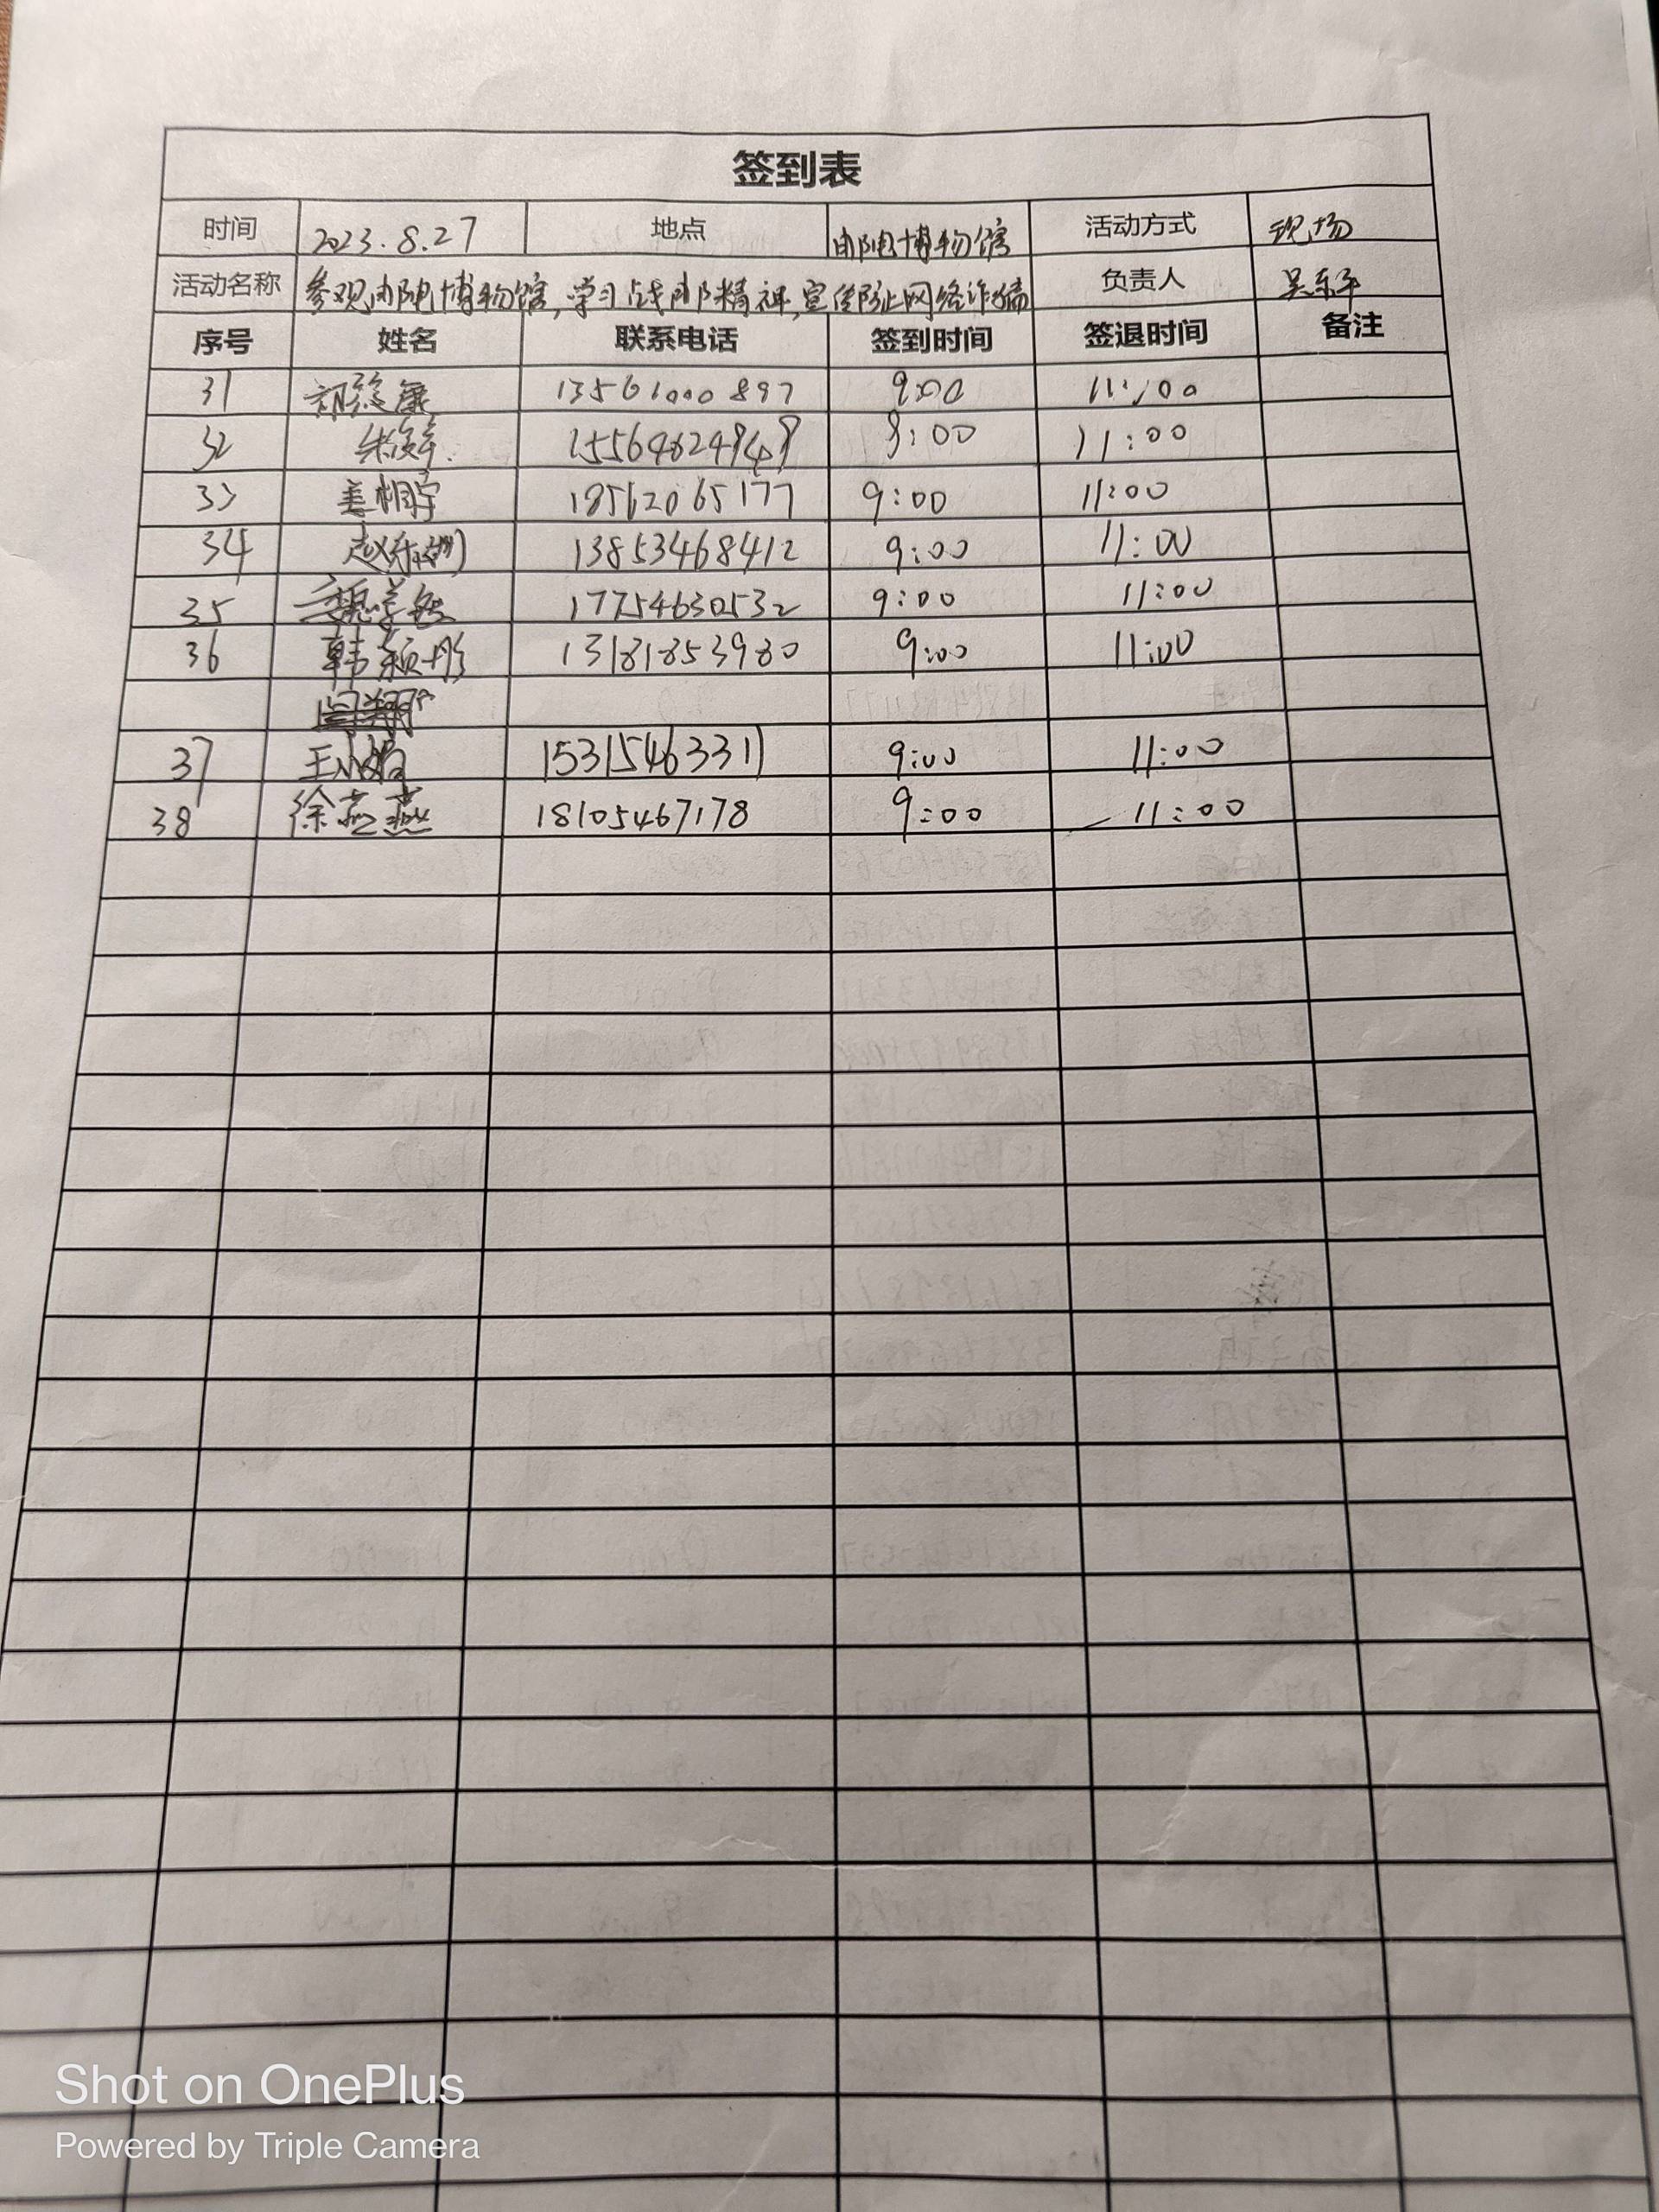 签到表
时间 2023.8.27 地点 邮电博物馆 活动方式 现场
活动名称 参观邮电博物馆,学习战邮精神,宣传防止网络诈骗 负责人 吴东平
序号 姓名 联系电话 签到时间 签退时间 备注
31 13561000897 9:00 11:00
32 15564624949 9:00 11:00
33 姜相宇 18562065177 9:00 11:00
34 13853468412 9:00 11:00
35 17754630532 9:00 11:00
36 韩颖彤 13181853980 9:00 11:00
37 王小娟 15315463311 9:00 11:00
38 徐燕燕 18105467178 9:00 11:00
Shot on OnePlus
Powered by Triple Camera